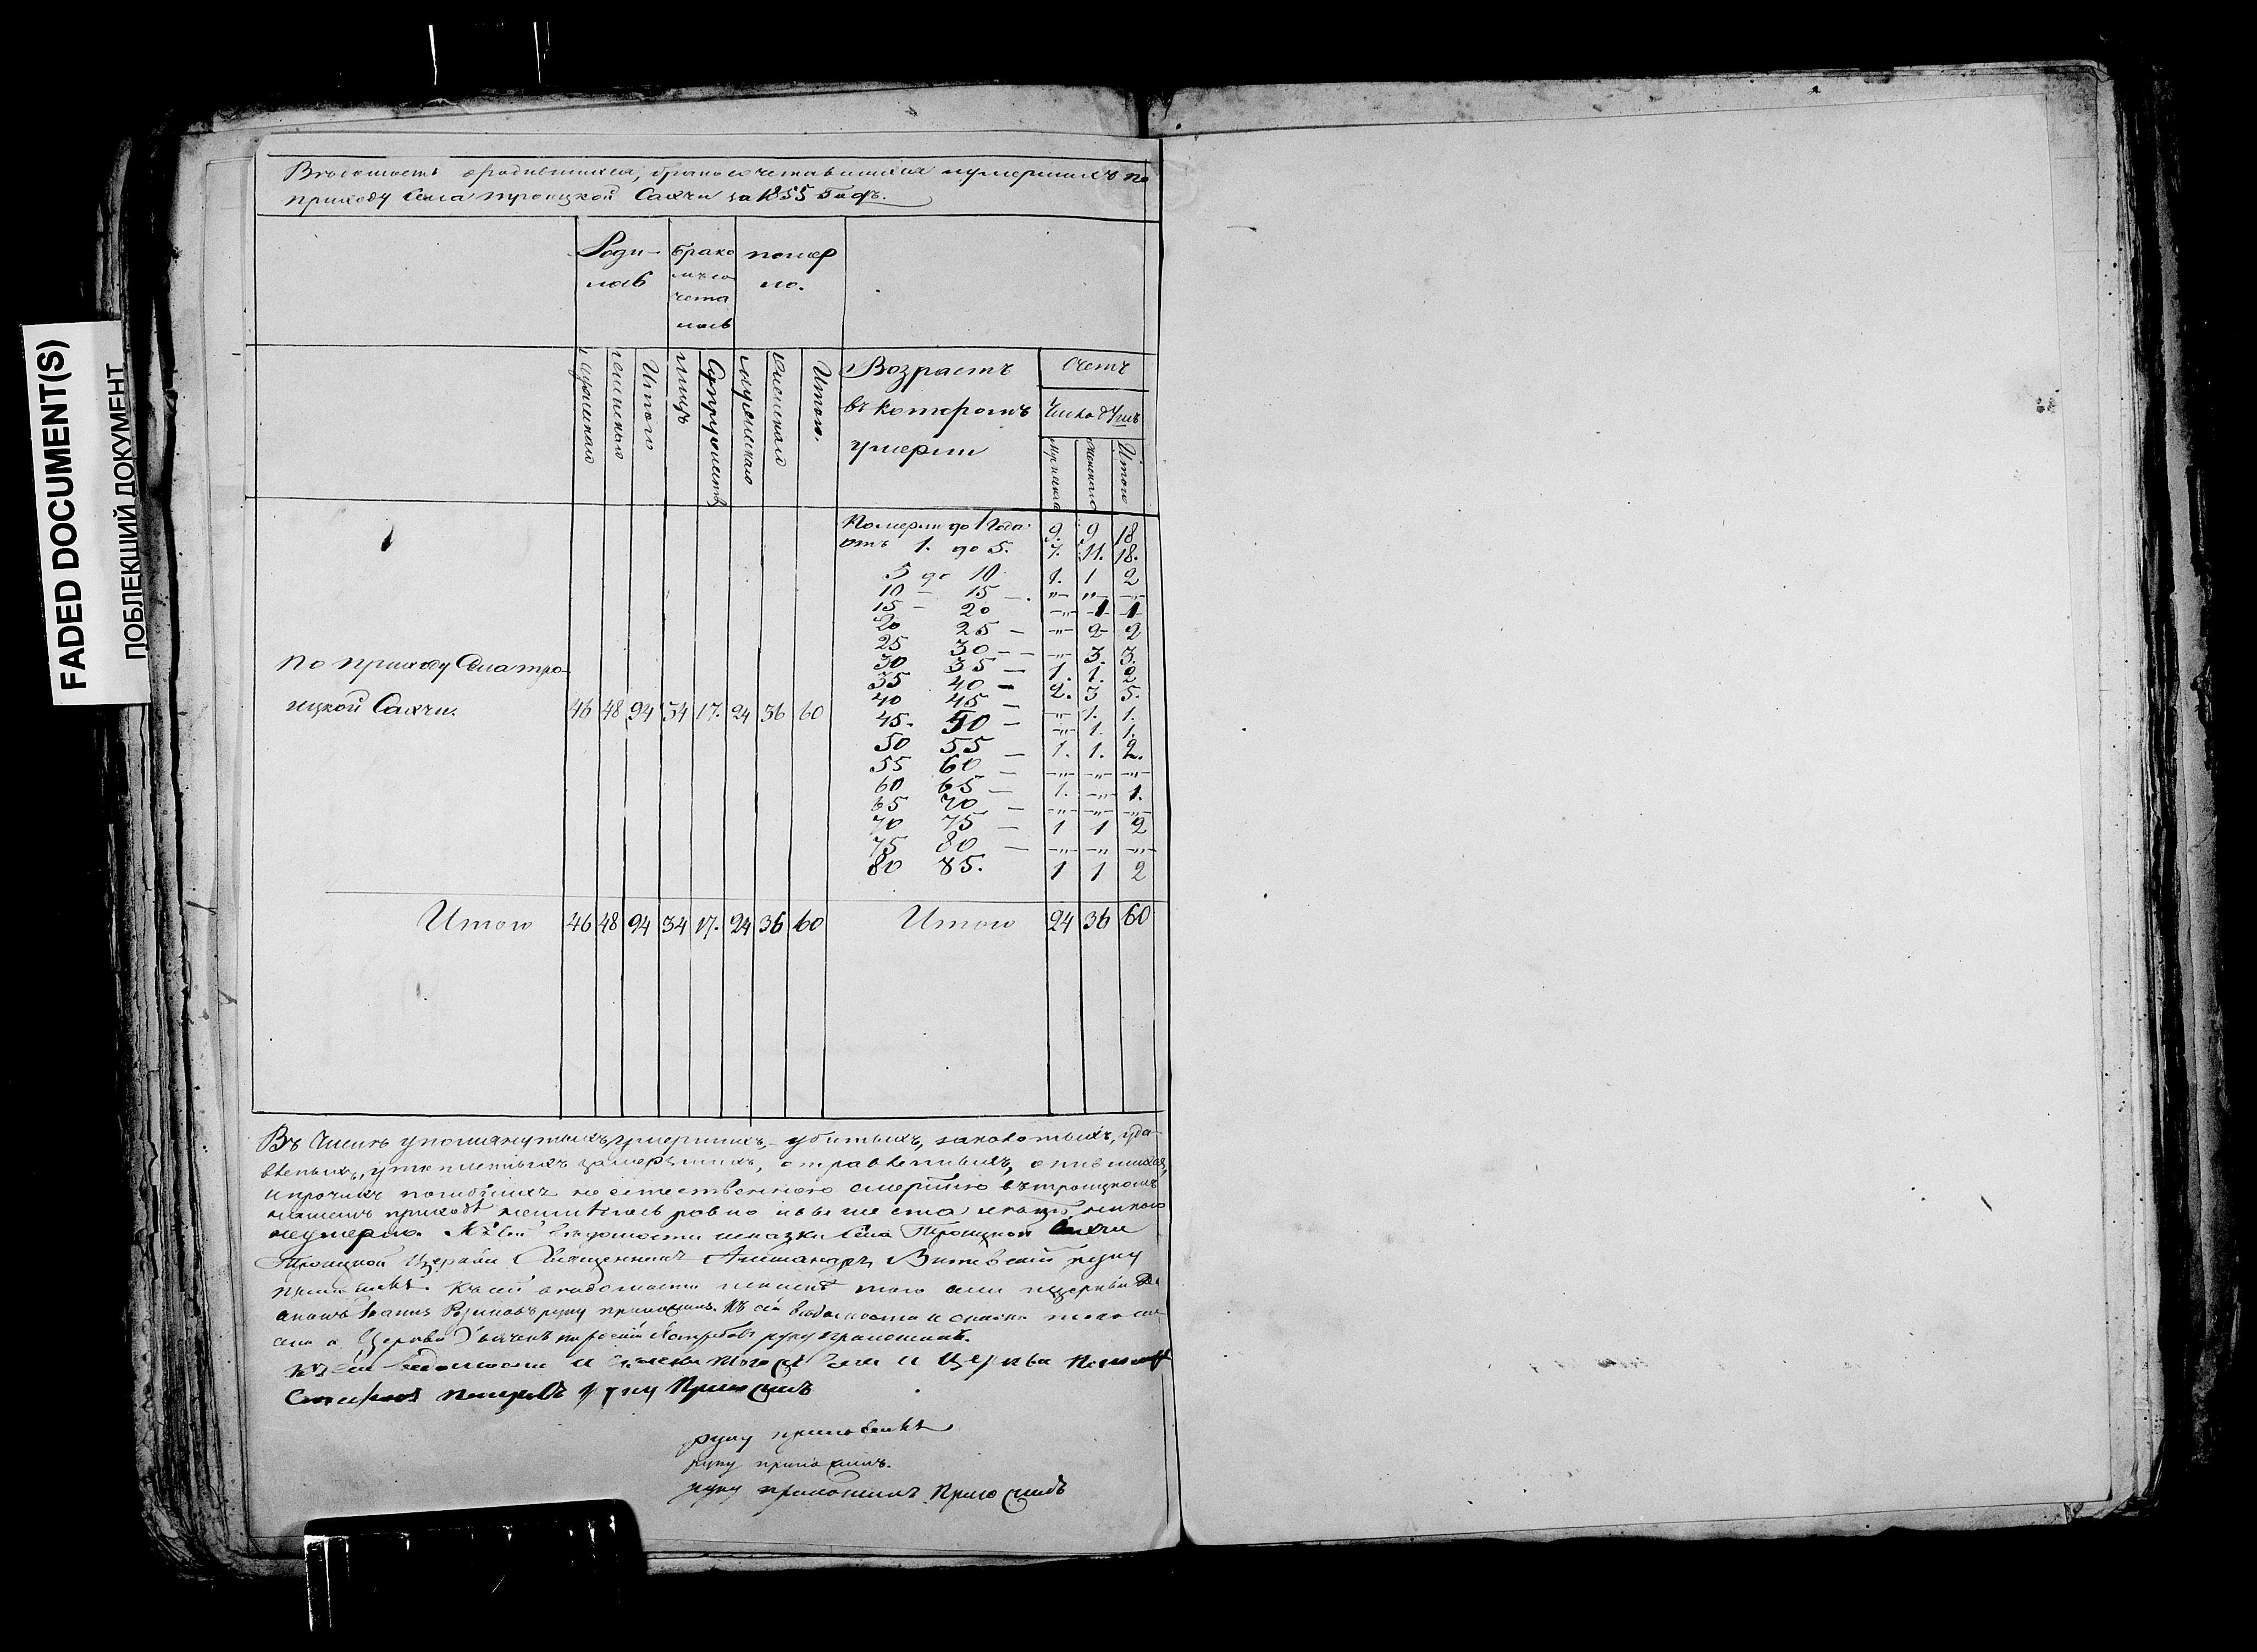 FADED DOCUMENT(S)
ПОБЛЕКШИЙ ДОКУМЕНТ
Вѣдомость о родившихся, бракосочетавшихся и умершихъ по
приходу Села Троицкой Сахчи за 1855 Годъ.
Роди-
лось
брако
мъ со
чета
лось
помер
ло.
Мужеска
женска
Итого
лицъ
Супружествъ
мужеска
женска
Итого.
Возрастъ
въ которомъ
умерли
Счетъ
Число душъ
Мужеска
Женска
Итого
Померли до 1 Года 9. 9 18
отъ 1. до 5. 7. 11. 18.
5 до 10 1. 1 2
10 — 15 —. „ „ „
15 — 20 „ 1 1
20 25 — „ 2 2
25 30 — „ 3. 3.
30 35 — 1. 1. 2
35 40 — 2. 3 5.
40 45 — „ 1. 1.
45. 50 — „ 1. 1.
50 55 — 1. 1. 2.
55 60 — „ „ „
60 65 — 1. „ 1.
65 70 — „ „ „
70 75 — 1 1 2
75 80 — „ „ „
80 85. 1 1 2
по приходу Села Тро-
ицкой Сахчи. 46 48 94 34 17. 24 36 60
Итого 46 48 94 34 17. 24 36 60 Итого 24 36 60
Въ Числѣ упомянутыхъ умершихъ, убитыхъ, заколотыхъ, уда-
вленыхъ, утоплетыхъ замерзшихъ, отравленныхъ, опившихся,
и прочихъ погибшихъ не естественною смертію въ троицкомъ
нашемъ приходѣ неимѣлось равно и выше ста лѣтъ никого
неумерло. Къ сей вѣдомости и сказки Села Троицкой Сахчи
Троицкой Церкви Священникъ Александръ руку
приложилъ. Къ сей вѣдомости того села и церкви Ді
аконъ Іоаннъ руку приложилъ. Къ сей вѣдомости и того се
ла и Церкви руку приложилъ.
Къ сей вѣдомости и того села и Церкви
руку Приложилъ
руку приложилъ
руку приложилъ.
руку приложилъ. Приложилъ